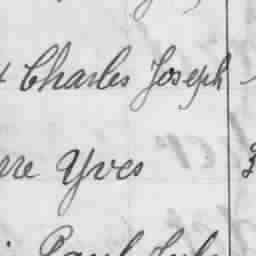 Charles Joseph
rre Yves
Paul Jul